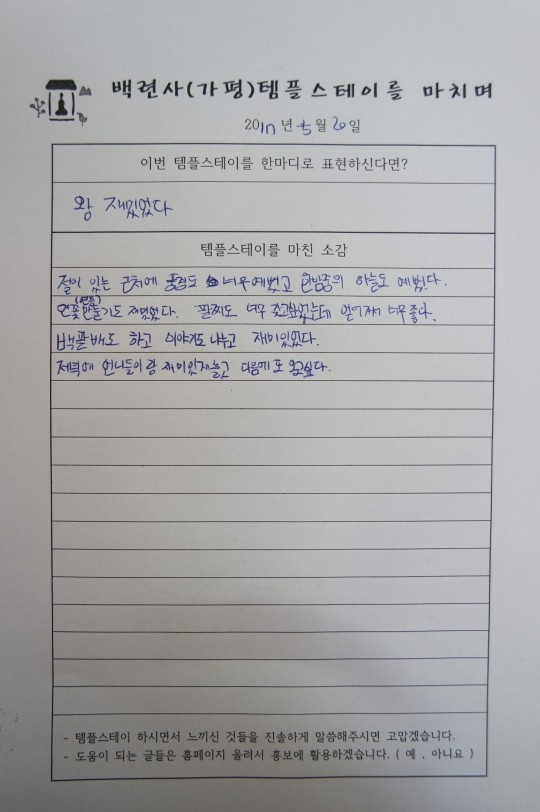 백련사(가평)템플스테이를 마치며
2017년 5월 20일
이번 템플스테이를 한마디로 표현하신다면?
왕 재밌었다
템플스테이를 마친 소감
절이 있는 근처에 풍경도 너무 예뻤고 한밤중의 하늘도 예뻤다.
(연등)
연꽃 만들기도 재밌었다. 팔찌도 너무 갖고싶었는데 얻어가서 너무좋다.
백팔배도 하고 이야기도 나누고 재미있었다.
저녁에 언니들이랑 재미있게놀고 다음에 또 오고싶다.
- 템플스테이 하시면서 느끼신 것들을 진솔하게 말씀해주시면 고맙겠습니다.
- 도움이 되는 글들은 홈페이지 올려서 홍보에 활용하겠습니다. ( 예 , 아니요 )